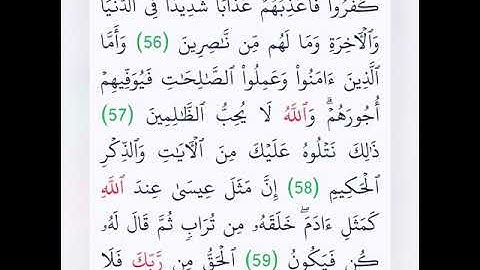 كَفَرُوا۟ فَأُعَذِّبُهُمْ عَذَابًا شَدِيدًا فِى ٱلدُّنْيَا
وَٱلْـَٔاخِرَةِ وَمَا لَهُم مِّن نَّـٰصِرِينَ (56) وَأَمَّا
ٱلَّذِينَ ءَامَنُوا۟ وَعَمِلُوا۟ ٱلصَّـٰلِحَـٰتِ فَيُوَفِّيهِمْ
أُجُورَهُمْ ۗ وَٱللَّهُ لَا يُحِبُّ ٱلظَّـٰلِمِينَ (57)
ذَٰلِكَ نَتْلُوهُ عَلَيْكَ مِنَ ٱلْـَٔايَـٰتِ وَٱلذِّكْرِ
ٱلْحَكِيمِ (58) إِنَّ مَثَلَ عِيسَىٰ عِندَ ٱللَّهِ
كَمَثَلِ ءَادَمَ ۖ خَلَقَهُۥ مِن تُرَابٍ ثُمَّ قَالَ لَهُۥ
كُن فَيَكُونُ (59) ٱلْحَقُّ مِن رَّبِّكَ فَلَا